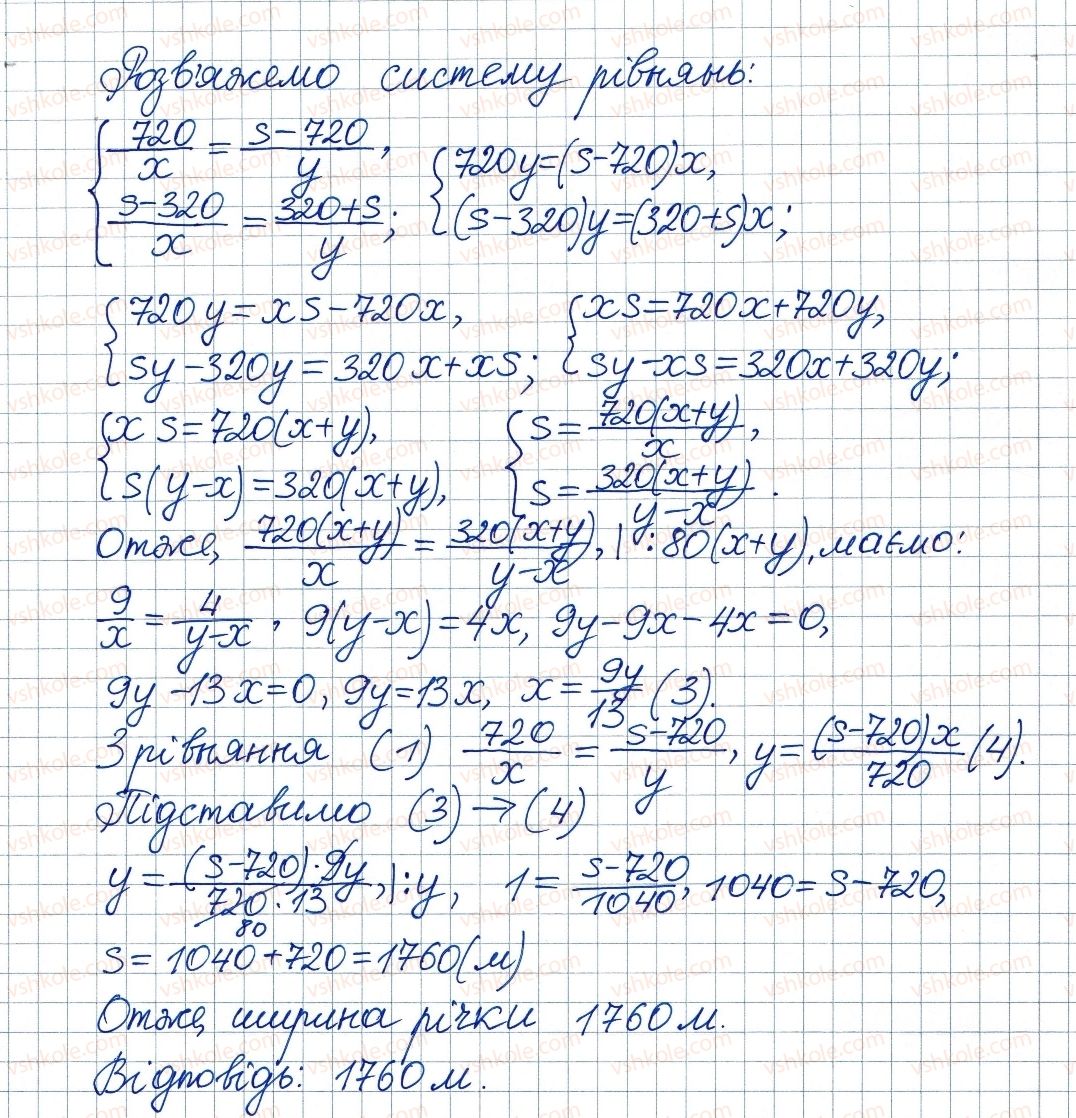 Розв'яжемо систему рівнянь:
{ 720/x = (s−720)/y, { 720y=(s−720)x,
(s−320)/x = (320+s)/y; (s−320)y=(320+s)x;
{ 720y=xs−720x, { xs=720x+720y,
sy−320y=320x+xs; sy−xs=320x+320y;
{ xs=720(x+y), { s=720(x+y)/x,
s(y−x)=320(x+y), s=320(x+y)/(y−x).
Отже, 720(x+y)/x = 320(x+y)/(y−x), |:80(x+y), маємо:
9/x = 4/(y−x), 9(y−x)=4x, 9y−9x−4x=0,
9y−13x=0, 9y=13x, x=9y/13 (3).
З рівняння (1) 720/x = (s−720)/y, y=(s−720)x/720 (4).
Підставимо (3)→(4)
y=(s−720)·9y/(720·13), |:y, 1=(s−720)/1040, 1040=s−720,
80
s=1040+720=1760(м)
Отже, ширина річки 1760м.
Відповідь: 1760м.
vshkole.com